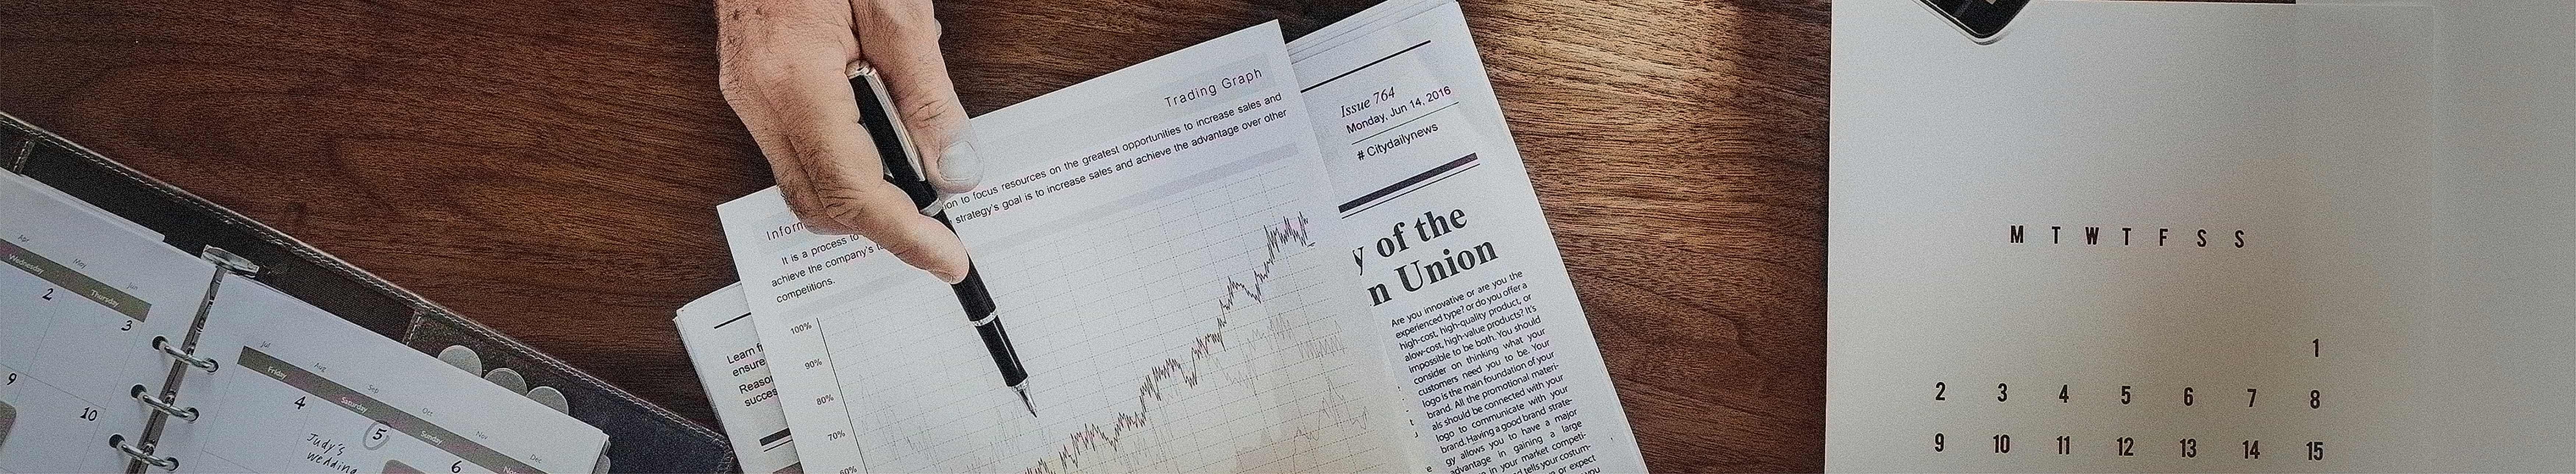 Apr
May
Jun
Wednesday
Thursday
2
3
9
10
Jul
Aug
Sep
Oct
Nov
Dec
Friday
Saturday
Sunday
4
5
6
Judy's
wedding
Trading Graph
Inform
It is a process to
ion to focus resources on the greatest opportunities to increase sales and
achieve the company's
strategy's goal is to increase sales and achieve the advantage over other
competitions.
100%
90%
80%
70%
60%
Learn
ensure
Reaso
succes
Issue 764
Monday, Jun 14, 2016
# Citydailynews
y of the
n Union
Are you innovative or are you the
experienced type? or do you offer a
high-cost, high-quality product, or
alow-cost, high-value products? It's
impossible to be both. You should
consider on thinking what your
customers need you to be. Your
logo is the main foundation of your
brand. All the promotional materi-
als should be connected with your
logo to communicate with your
brand. Having a good brand strate-
gy allows you to have a major
advantage in gaining a large
in your market competi-
tells your costum-
or expect
M T W T F S S
1
2 3 4 5 6 7 8
9 10 11 12 13 14 15